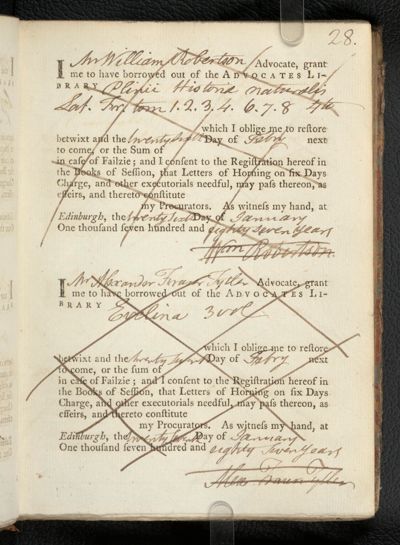 28.
I Mr William Robertson Advocate, grant
me to have borrowed out of the ADVOCATES LI-
BRARY Plinii Historia naturalis
Lat. tom 1. 2. 3. 4. 6. 7. 8 4to
which I oblige me to restore
betwixt and the twenty sixth Day of Febry next
to come, or the Sum of
in case of Failzie; and I consent to the Registration hereof in
the Books of Session, that Letters of Horning on six Days
Charge, and other executorials needful, may pass thereon, as
effeirs, and thereto constitute
my Procurators. As witness my hand, at
Edinburgh, the twenty sixth Day of January
One thousand seven hundred and eighty seven years
Wm Robertson
I Mr Alexander Fraser Tytler Advocate, grant
me to have borrowed out of the ADVOCATES LI-
BRARY Evelina 3 vol
which I oblige me to restore
betwixt and the twenty Day of Febry next
to come, or the sum of
in case of Failzie; and I consent to the Registration hereof in
the Books of Session, that Letters of Horning on six Days
Charge, and other executorials needful, may pass thereon, as
effeirs, and thereto constitute
my Procurators. As witness my hand, at
Edinburgh, the twenty Day of January
One thousand seven hundred and eighty seven years
Alex Fraser Tytler